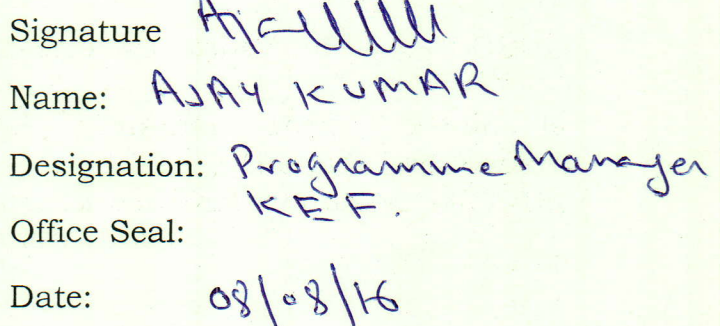 Signature
Name: AJAY KUMAR
Designation: Programme Manager
KEF.
Office Seal:
Date: 08/08/16